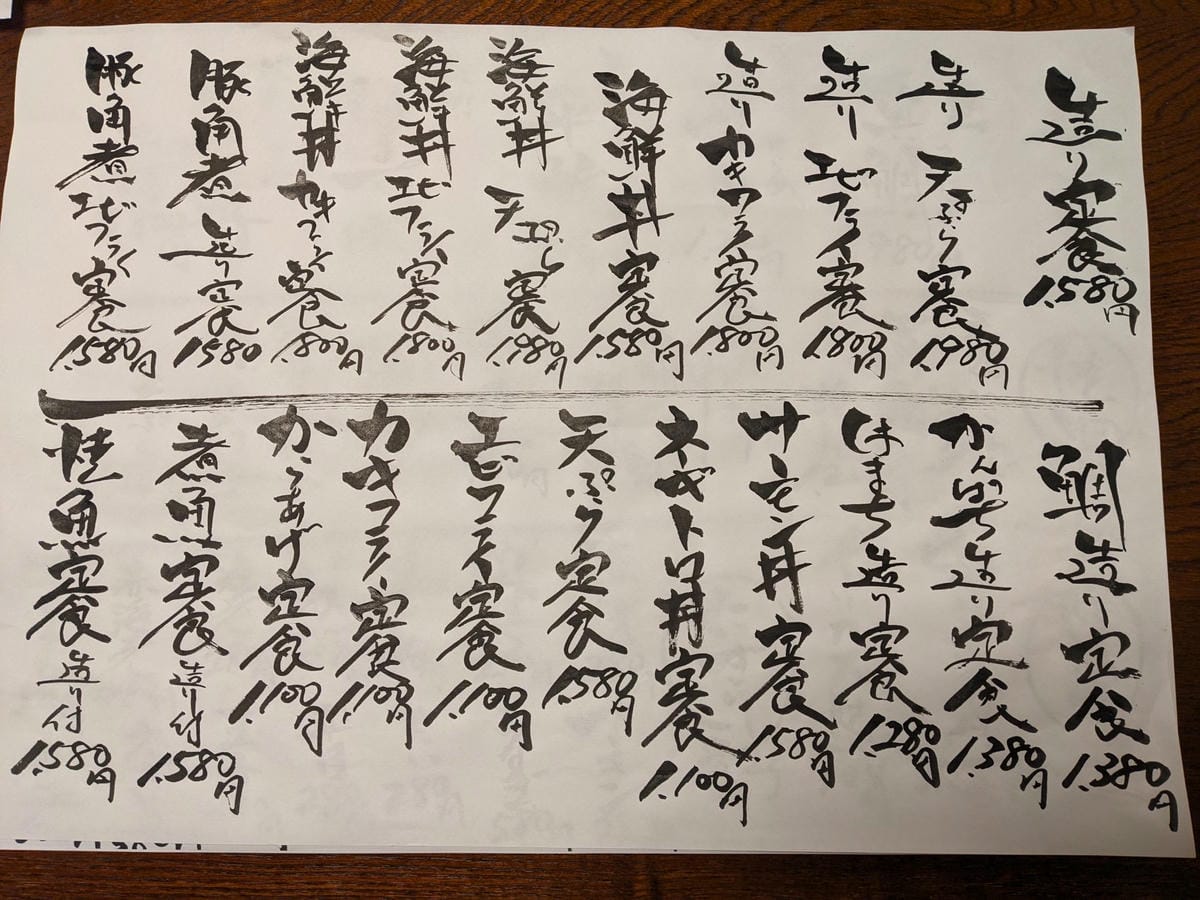 造り定食 1.580円
造り 天ぷら定食 1.980円
造り エビフライ定食 1.800円
造り カキフライ定食 1.800円
海鮮丼定食 1.580円
海鮮丼 天ぷら定食 1.980円
海鮮丼 エビフライ定食 1.800円
海鮮丼 カキフライ定食 1.800円
豚角煮 造り定食 1.580
豚角煮 エビフライ定食 1.580円
鯛造り定食 1.380円
かんぱち造り定食 1.380円
はまち造り定食 1.280円
サーモン丼定食 1.580円
ネギトロ丼定食 1.100円
天ぷら定食 1.580円
エビフライ定食 1.100円
カキフライ定食 1.100円
からあげ定食 1.100円
煮魚定食 造り付 1.580円
焼魚定食 造り付 1.580円